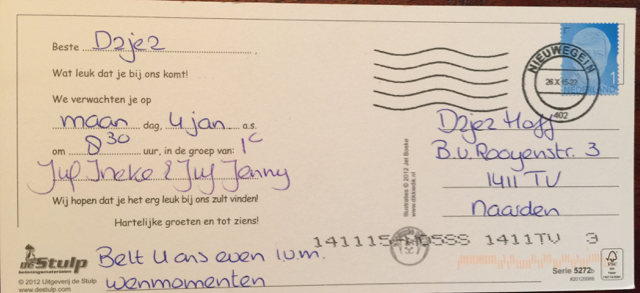 Beste Dzjez
Wat leuk dat je bij ons komt!
We verwachten je op
maan dag, 4 jan a.s.
om 8³⁰ uur, in de groep van: 1c
Juf Ineke & Juf Jenny
Wij hopen dat je het erg leuk bij ons zult vinden!
Hartelijke groeten en tot ziens!
Belt U ons even i.v.m.
wenmomenten
de Stulp
© 2012 Uitgeverij de Stulp
www.destulp.com
Illustraties © 2012 Jet Boeke
www.dikkiedik.nl
NIEUWEGEIN
402
1
NEDERLAND
Dzjez Hoff
B.V. Rooyenstr. 3
1411 TV
Naarden
1411TV 3
Serie 5272b
FSC